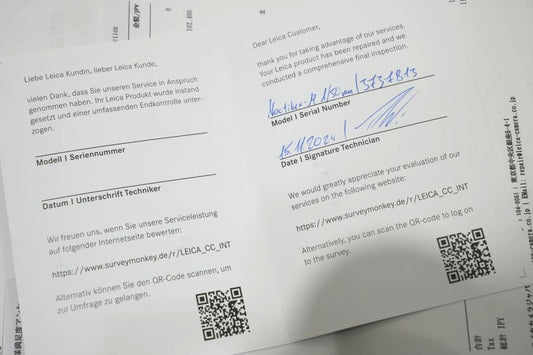 Liebe Leica Kundin, lieber Leica Kunde,
vielen Dank, dass Sie unseren Service in Anspruch
genommen haben. Ihr Leica Produkt wurde instand
gesetzt und einer umfassenden Endkontrolle unter-
zogen.
Modell I Seriennummer
Datum I Unterschrift Techniker
Wir freuen uns, wenn Sie unsere Serviceleistung
auf folgender Internetseite bewerten:
https://www.surveymonkey.de/r/LEICA_CC_INT
Alternativ können Sie den QR-Code scannen, um
zur Umfrage zu gelangen.
Dear Leica Customer,
thank you for taking advantage of our services.
Your Leica product has been repaired and we
conducted a comprehensive final inspection.
Noctilux-M 1/50mm | 3731813
Model I Serial Number
15.11.2024 |
Date I Signature Technician
We would greatly appreciate your evaluation of our
services on the following website:
https://www.surveymonkey.de/r/LEICA_CC_INT
Alternatively, you can scan the QR-code to log on
to the survey.
金額/JPY
102,400
104-0061 | 東京都中央区銀座6-4-1
| EMail: repair@leica-camera.co.jp
合計
Tax
総計 JPY